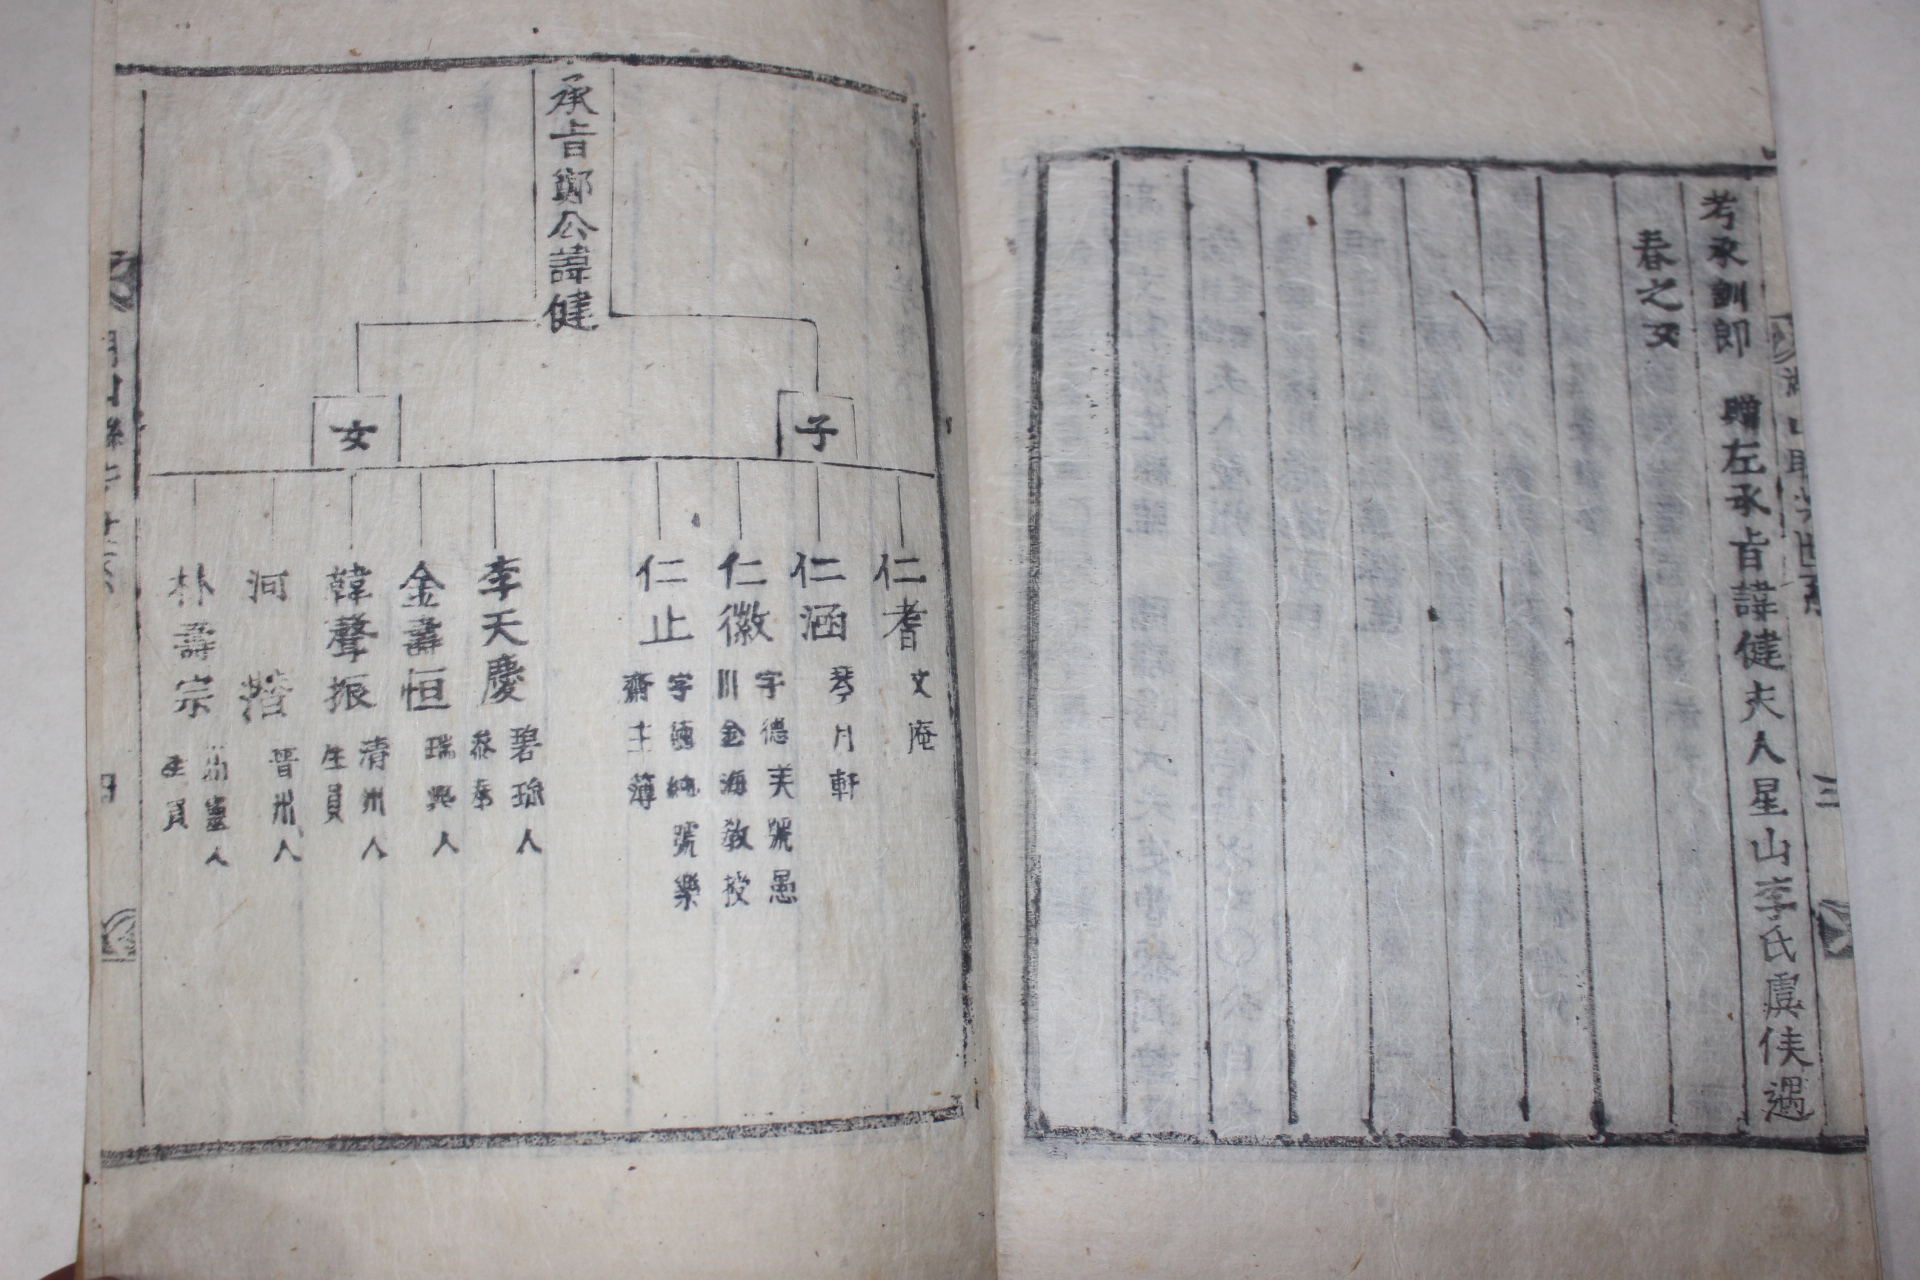 考承訓郎 贈左承旨諱健夫人星山李氏虞侯遇
春之女
三
承旨鄭公諱健
子
女
仁耆 文庵
仁涵 琴月軒
仁徽 字德美號愚
川金海敎授
仁止 字德純號樂
齋主薄
李天慶 碧珍人
叅奉
金壽恒 瑞興人
韓聲振 淸州人
生員
河 晉州人
林壽宗 人
生員
四